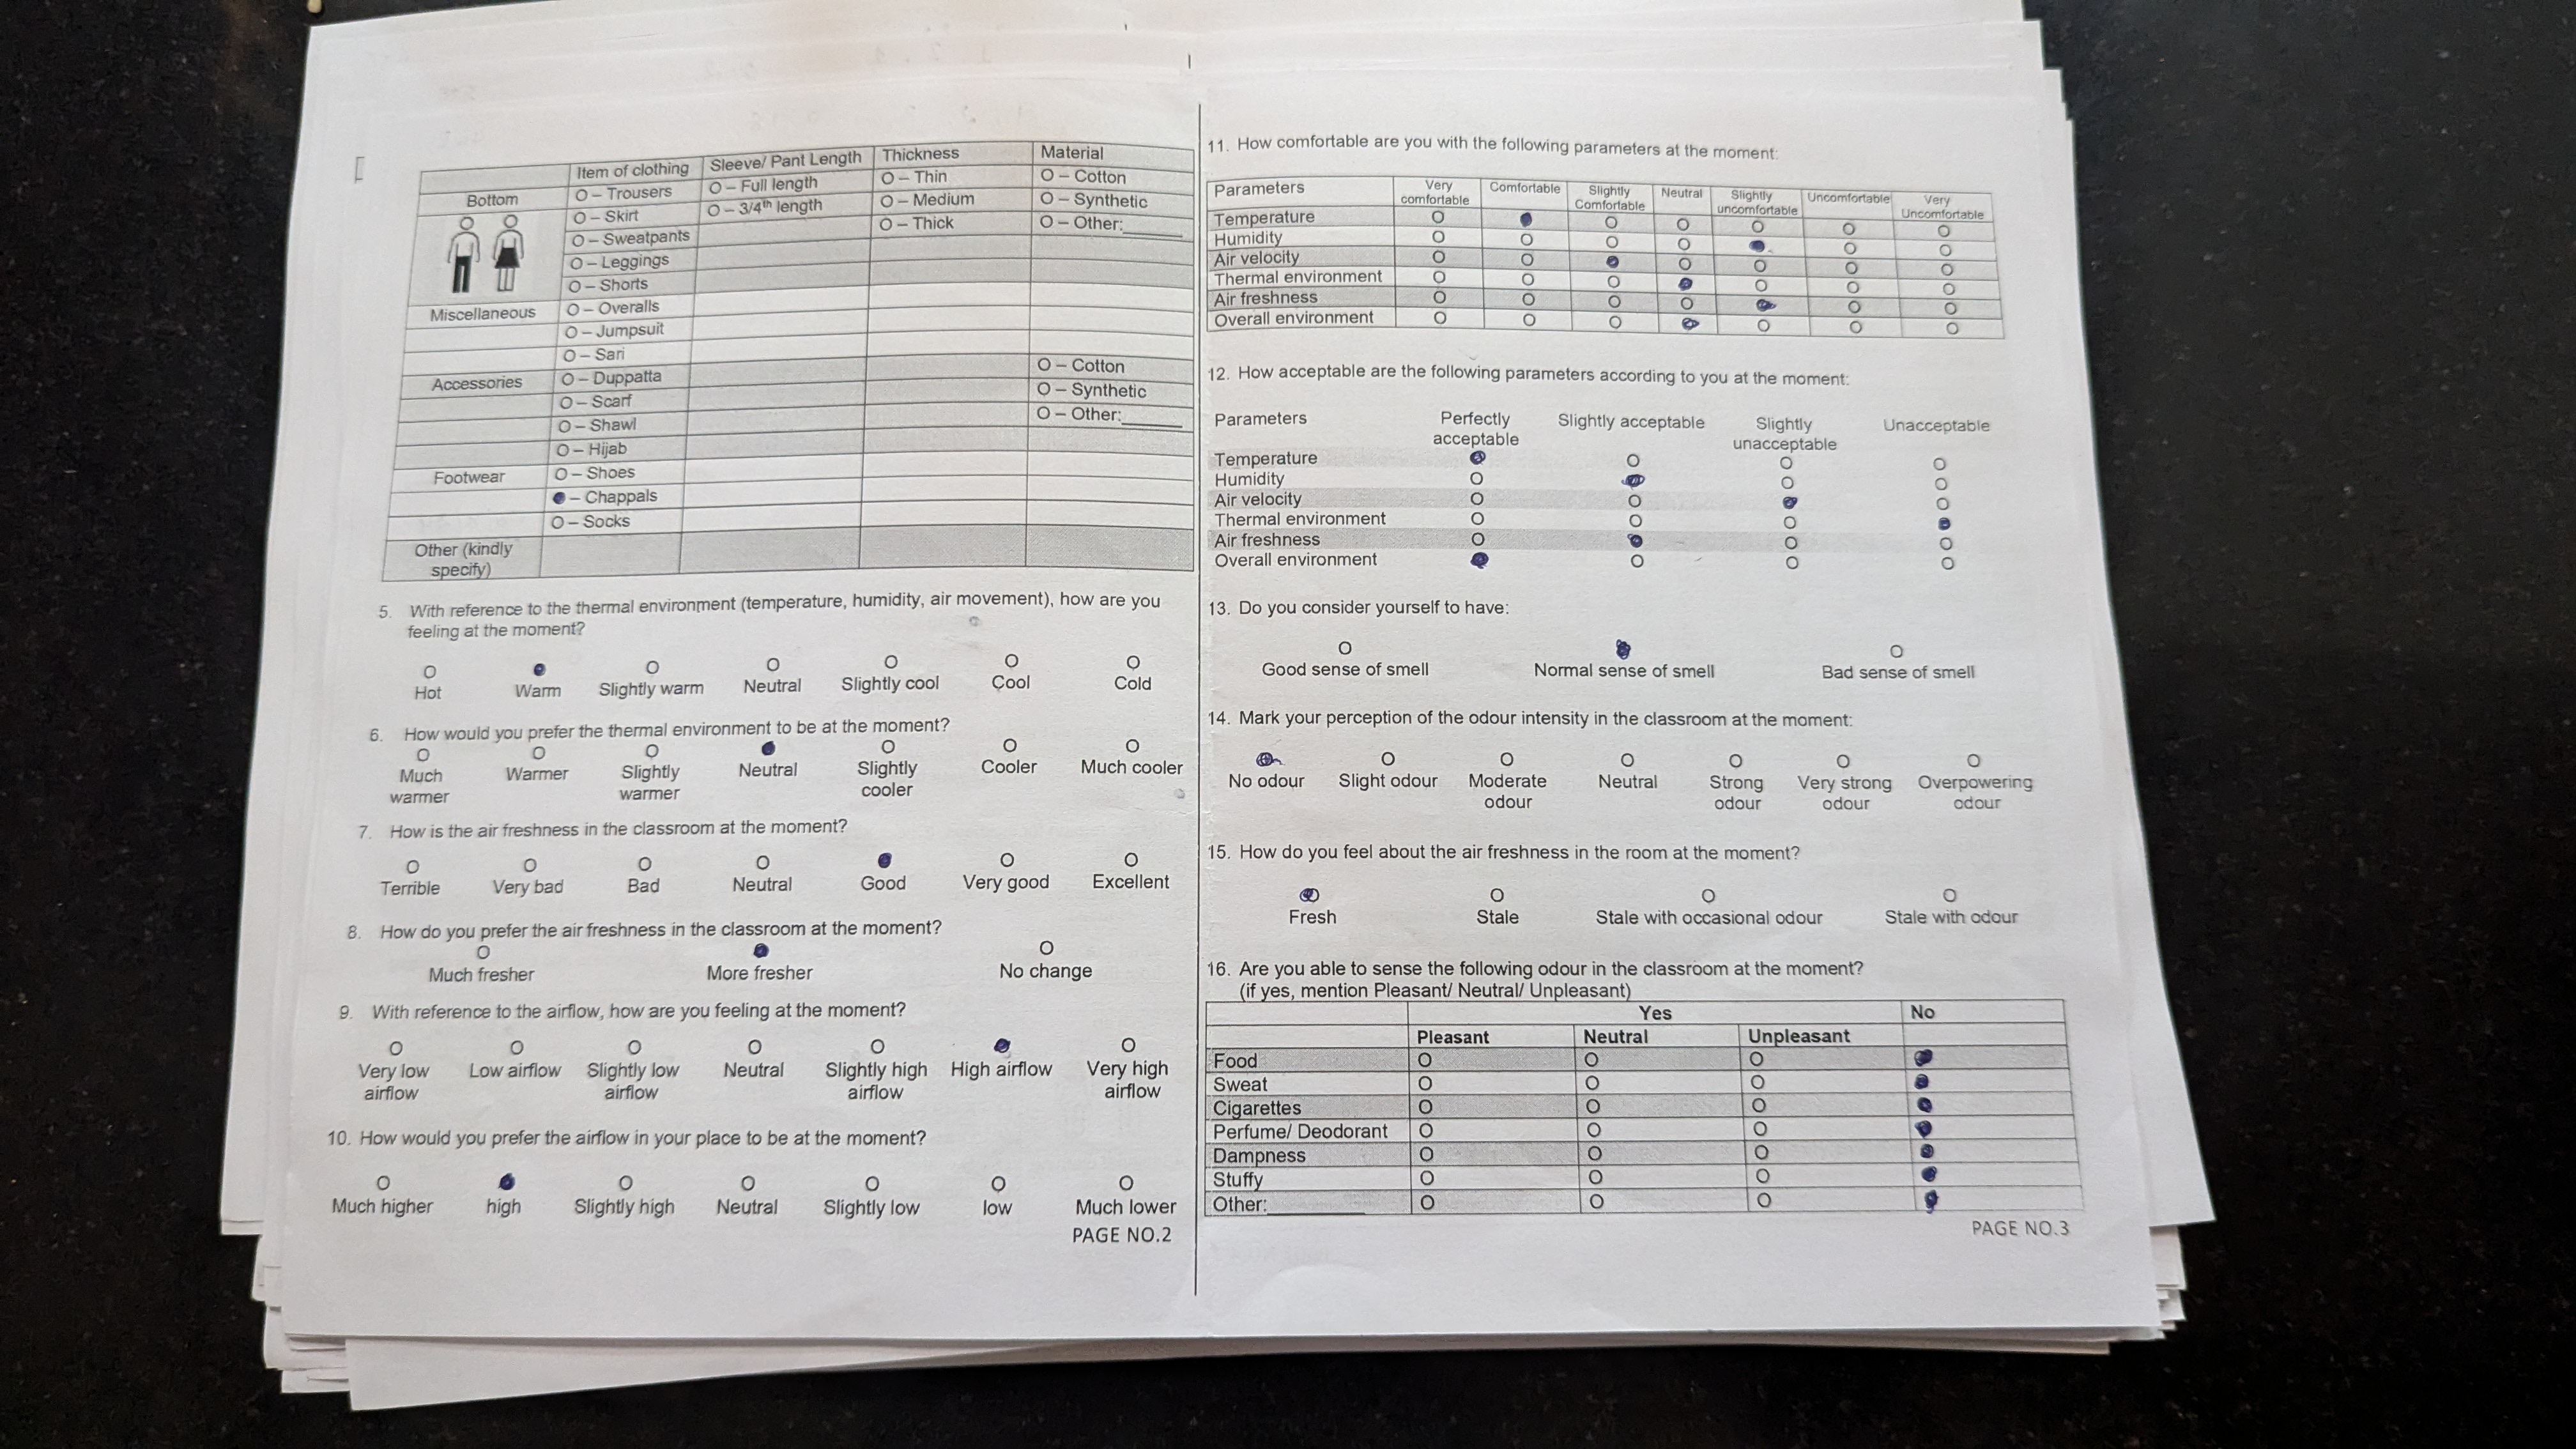 Item of clothing Sleeve/ Pant Length Thickness Material
Bottom O – Trousers O – Full length O – Thin O – Cotton
O – Skirt O – 3/4th length O – Medium O – Synthetic
O – Sweatpants O – Thick O – Other:______
O – Leggings
O – Shorts
Miscellaneous O – Overalls
O – Jumpsuit
O – Sari
Accessories O – Duppatta O – Cotton
O – Scarf O – Synthetic
O – Shawl O – Other:______
O – Hijab
Footwear O – Shoes
– Chappals
O – Socks
Other (kindly
specify)
5. With reference to the thermal environment (temperature, humidity, air movement), how are you
feeling at the moment?
Hot Warm Slightly warm Neutral Slightly cool Cool Cold
6. How would you prefer the thermal environment to be at the moment?
Much Warmer Slightly Neutral Slightly Cooler Much cooler
warmer warmer cooler
7. How is the air freshness in the classroom at the moment?
Terrible Very bad Bad Neutral Good Very good Excellent
8. How do you prefer the air freshness in the classroom at the moment?
Much fresher More fresher No change
9. With reference to the airflow, how are you feeling at the moment?
Very low Low airflow Slightly low Neutral Slightly high High airflow Very high
airflow airflow airflow airflow
10. How would you prefer the airflow in your place to be at the moment?
Much higher high Slightly high Neutral Slightly low low Much lower
PAGE NO.2
11. How comfortable are you with the following parameters at the moment:
Parameters Very Comfortable Slightly Neutral Slightly Uncomfortable Very
comfortable Comfortable uncomfortable Uncomfortable
Temperature
Humidity
Air velocity
Thermal environment
Air freshness
Overall environment
12. How acceptable are the following parameters according to you at the moment:
Parameters Perfectly Slightly acceptable Slightly Unacceptable
acceptable unacceptable
Temperature
Humidity
Air velocity
Thermal environment
Air freshness
Overall environment
13. Do you consider yourself to have:
Good sense of smell Normal sense of smell Bad sense of smell
14. Mark your perception of the odour intensity in the classroom at the moment:
No odour Slight odour Moderate Neutral Strong Very strong Overpowering
odour odour odour odour
15. How do you feel about the air freshness in the room at the moment?
Fresh Stale Stale with occasional odour Stale with odour
16. Are you able to sense the following odour in the classroom at the moment?
(if yes, mention Pleasant/ Neutral/ Unpleasant)
Yes No
Pleasant Neutral Unpleasant
Food
Sweat
Cigarettes
Perfume/ Deodorant
Dampness
Stuffy
Other:__________
PAGE NO.3